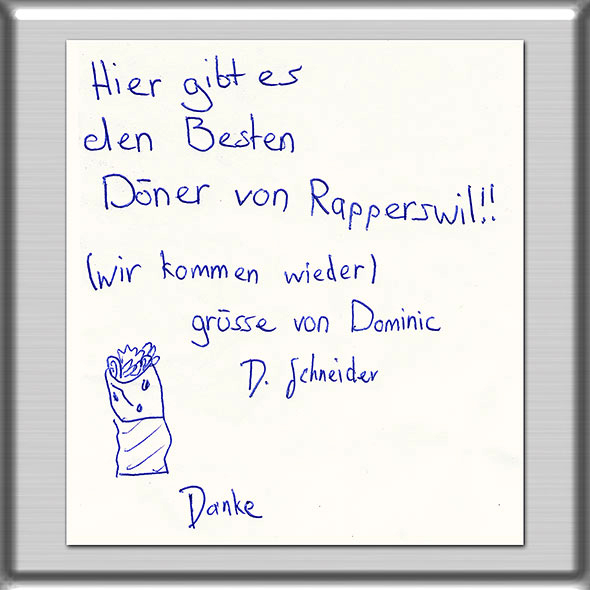 Hier gibt es
den Besten
Döner von Rapperswil!!
(wir kommen wieder)
grüsse von Dominic
D. Schneider
Danke